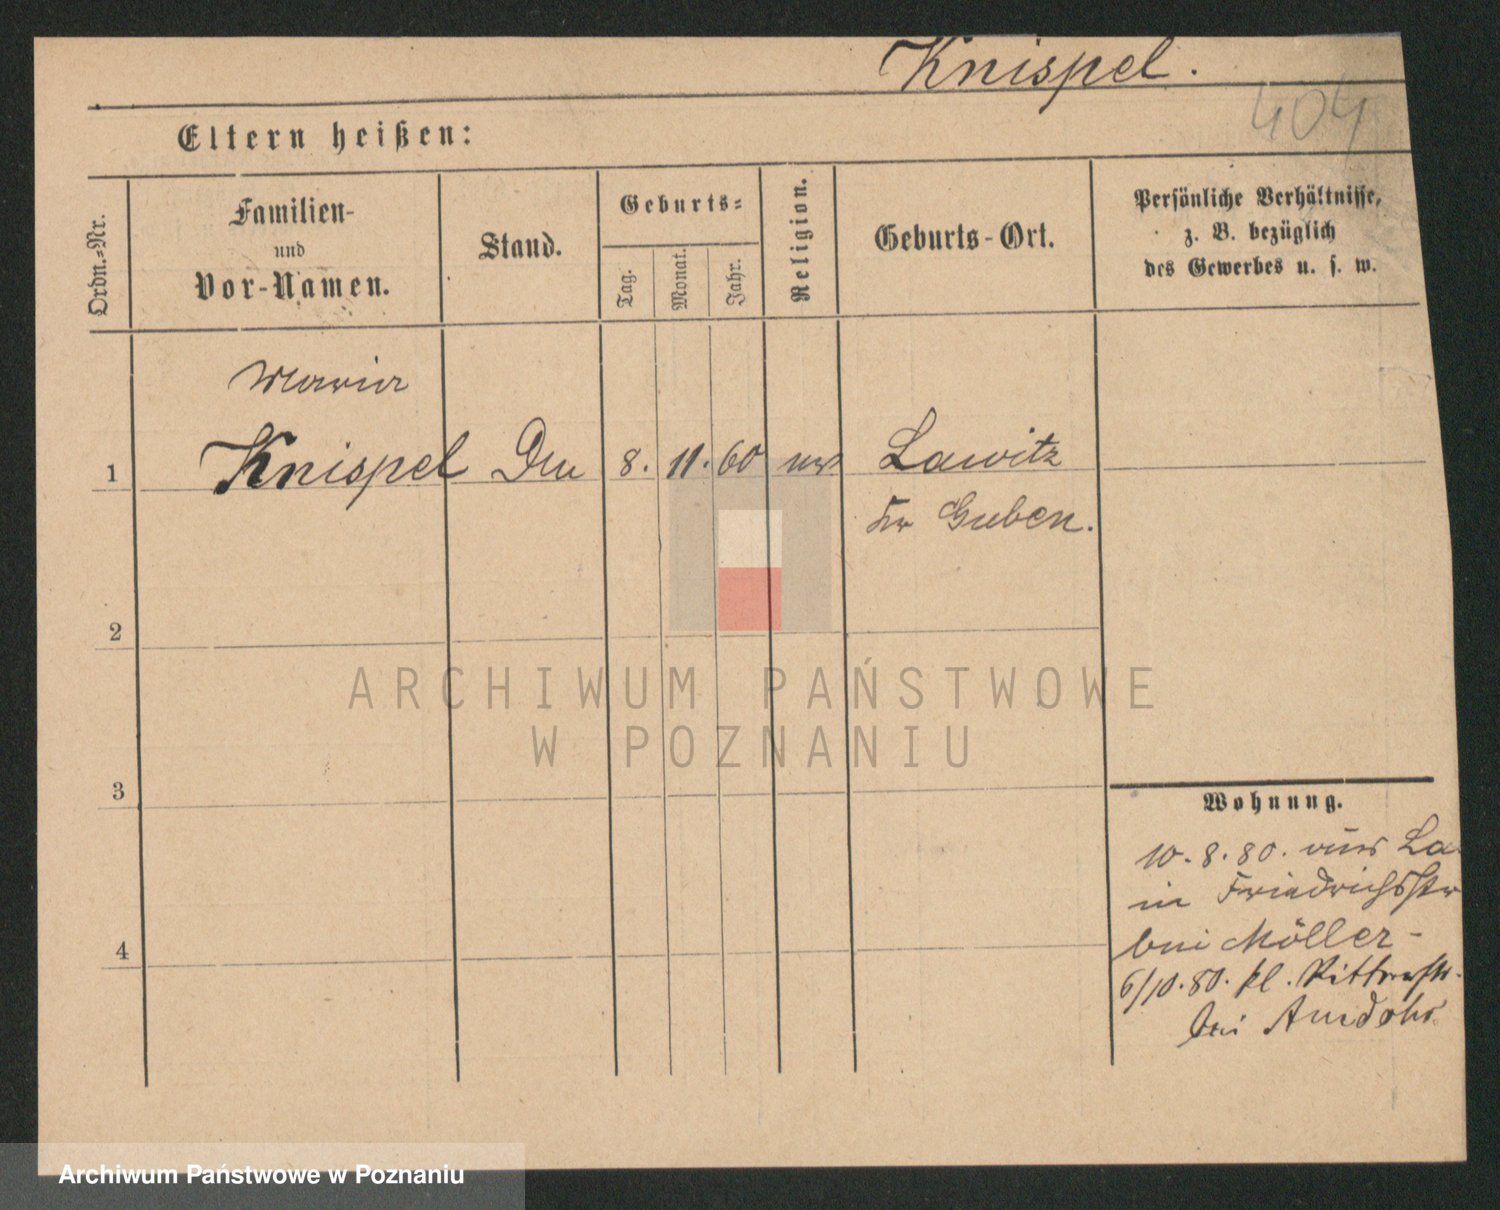 Knispel.
404
Eltern heißen:
Ordn.-Nr.
Familien-
und
Vor-Namen.
Stand.
Geburts-
Tag.
Monat.
Jahr.
Religion.
Geburts-Ort.
Persönliche Verhältnisse,
z. B. bezüglich
des Gewerbes u. s. w.
Maria
1 Knispel 8. 11. 60 Lawitz
Kr Guben.
2
ARCHIWUM PAŃSTWOWE
W POZNANIU
3
Wohnung.
10. 8. 80. aus La
in Friedrichsstr
bei Möller-
4
6/10. 80. kl. Ritterstr.
bei
Archiwum Państwowe w Poznaniu